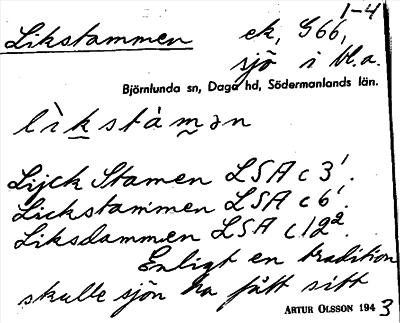 1-4
Likstammen ek, 566,
sjö i bl.a.
Björnlunda sn, Daga hd, Södermanlands län.
lìkstámən
Lijck Stamen LSA c 3¹.
Lickstammen LSA c 6¹.
Liksdammen LSA c 12².
Enligt en tradition
skulle sjön ha fått sitt
ARTUR OLSSON 1943